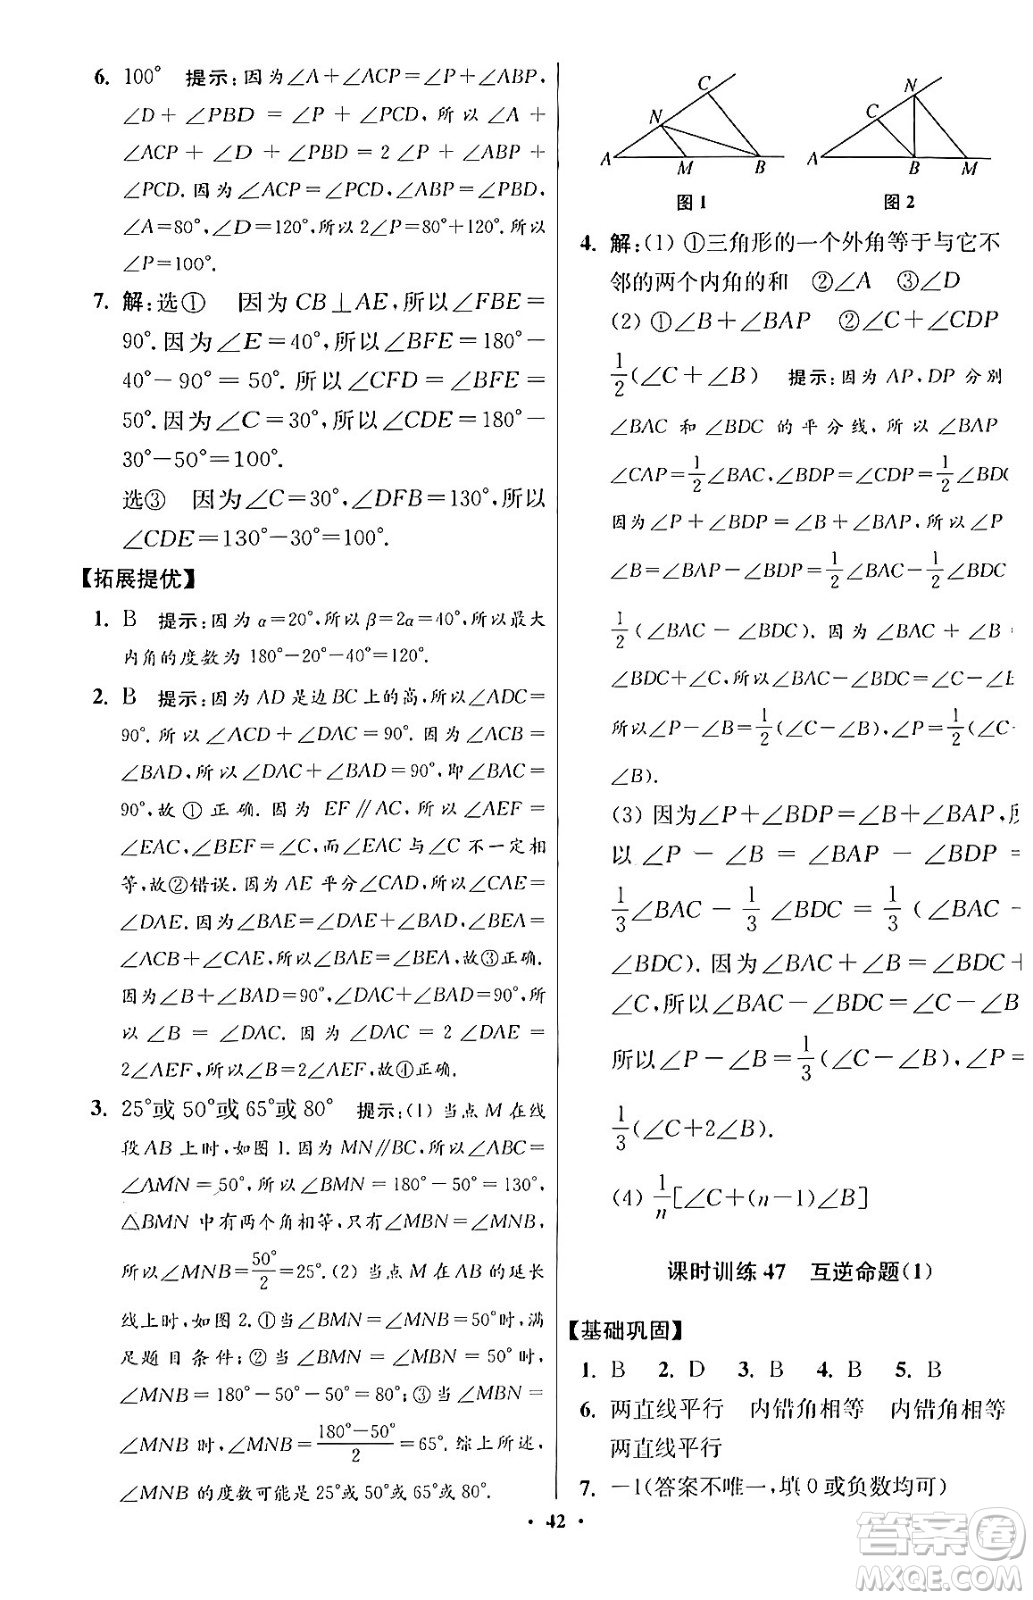 6. 100° 提示:因为∠A+∠ACP=∠P+∠ABP,
∠D+∠PBD=∠P+∠PCD,所以∠A+
∠ACP+∠D+∠PBD=2∠P+∠ABP+
∠PCD.因为∠ACP=∠PCD,∠ABP=∠PBD,
∠A=80°,∠D=120°,所以2∠P=80°+120°.所以
∠P=100°.
7. 解:选① 因为CB⊥AE,所以∠FBE=
90°.因为∠E=40°,所以∠BFE=180°-
40°-90°=50°.所以∠CFD=∠BFE=
50°.因为∠C=30°,所以∠CDE=180°-
30°-50°=100°.
选③ 因为∠C=30°,∠DFB=130°,所以
∠CDE=130°-30°=100°.
【拓展提优】
1. B 提示:因为α=20°,所以β=2α=40°,所以最大
内角的度数为180°-20°-40°=120°.
2. B 提示:因为AD是边BC上的高,所以∠ADC=
90°.所以∠ACD+∠DAC=90°.因为∠ACB=
∠BAD,所以∠DAC+∠BAD=90°,即∠BAC=
90°,故①正确.因为EF∥AC,所以∠AEF=
∠EAC,∠BEF=∠C.因为∠EAC与∠C不一定相
等,故②错误.因为AE平分∠CAD,所以∠CAE=
∠DAE.因为∠BAE=∠DAE+∠BAD,∠BEA=
∠ACB+∠CAE,所以∠BAE=∠BEA,故③正确.
因为∠B+∠BAD=90°,∠DAC+∠BAD=90°,所
以∠B=∠DAC.因为∠DAC=2∠DAE=
2∠AEF,所以∠B=2∠AEF,故④正确.
3. 25°或50°或65°或80° 提示:(1)当点M在线
段AB上时,如图1.因为MN∥BC,所以∠ABC=
∠AMN=50°.所以∠BMN=180°-50°=130°,在
△BMN中有两个角相等,只有∠MBN=∠MNB,
所以∠MNB=50°/2=25°.(2)当点M在AB的延长
线上时,如图2.①当∠BMN=∠MNB=50°时,满
足题目条件;②当∠BMN=∠MBN=50°时,
∠MNB=180°-50°-50°=80°;③当∠MBN=
∠MNB时,∠MNB=(180°-50°)/2=65°.综上所述,
∠MNB的度数可能是25°或50°或65°或80°.
A N C M B
图1
A C N B M
图2
4. 解:(1)①三角形的一个外角等于与它不
邻的两个内角的和 ②∠A ③∠D
(2)①∠B+∠BAP ②∠C+∠CDP
1/2(∠C+∠B) 提示:因为AP,DP分别
∠BAC和∠BDC的平分线,所以∠BAP
∠CAP=1/2∠BAC,∠BDP=∠CDP=1/2∠BDC
因为∠P+∠BDP=∠B+∠BAP,所以∠P
∠B=∠BAP-∠BDP=1/2∠BAC-1/2∠BDC=
1/2(∠BAC-∠BDC).因为∠BAC+∠B=
∠BDC+∠C,所以∠BAC-∠BDC=∠C-∠B
所以∠P-∠B=1/2(∠C-∠B),∠P=1/2(∠C+
∠B).
(3)因为∠P+∠BDP=∠B+∠BAP,所
以∠P-∠B=∠BAP-∠BDP=
1/3∠BAC-1/3∠BDC=1/3(∠BAC-
∠BDC).因为∠BAC+∠B=∠BDC+
∠C,所以∠BAC-∠BDC=∠C-∠B
所以∠P-∠B=1/3(∠C-∠B),∠P=
1/3(∠C+2∠B).
(4)1/n[∠C+(n-1)∠B]
课时训练47 互逆命题(1)
【基础巩固】
1. B 2. D 3. B 4. B 5. B
6. 两直线平行 内错角相等 内错角相等
两直线平行
7. -1(答案不唯一,填0或负数均可)
• 42 •
答案圈
MXQE.COM